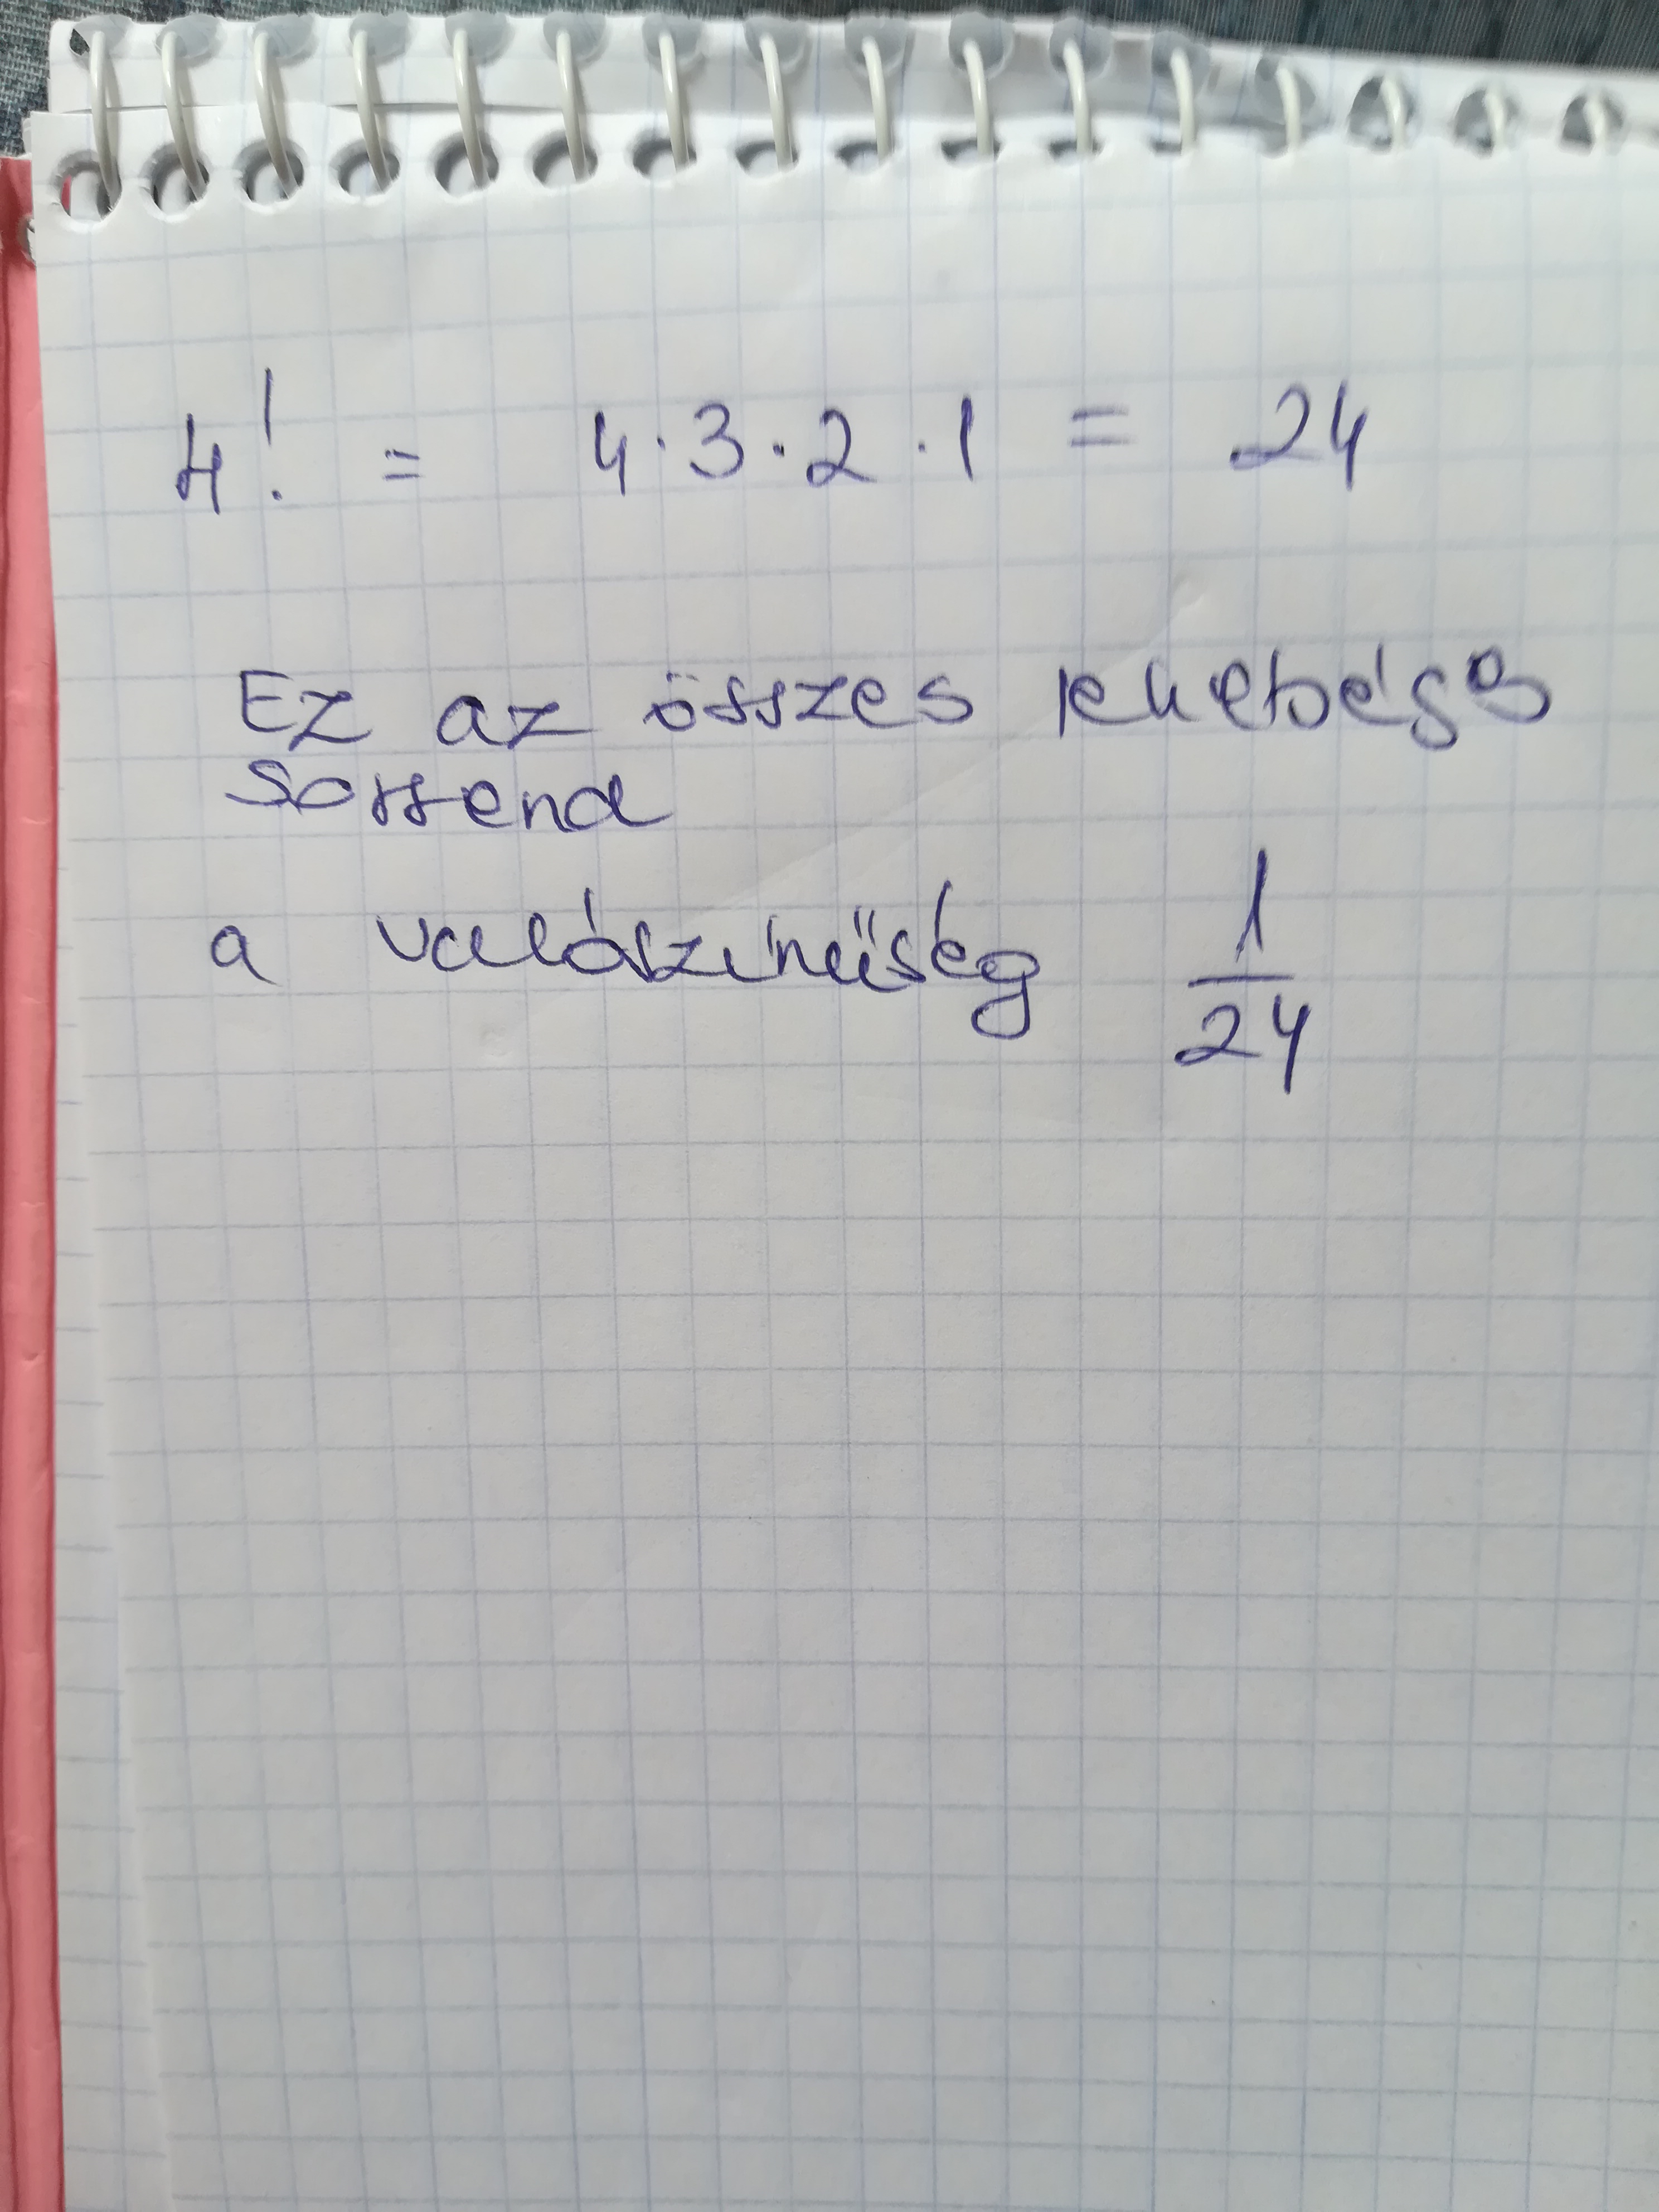 4! = 4·3·2·1 = 24
Ez az összes lehetséges
sorrend
a valószínűség 1/24